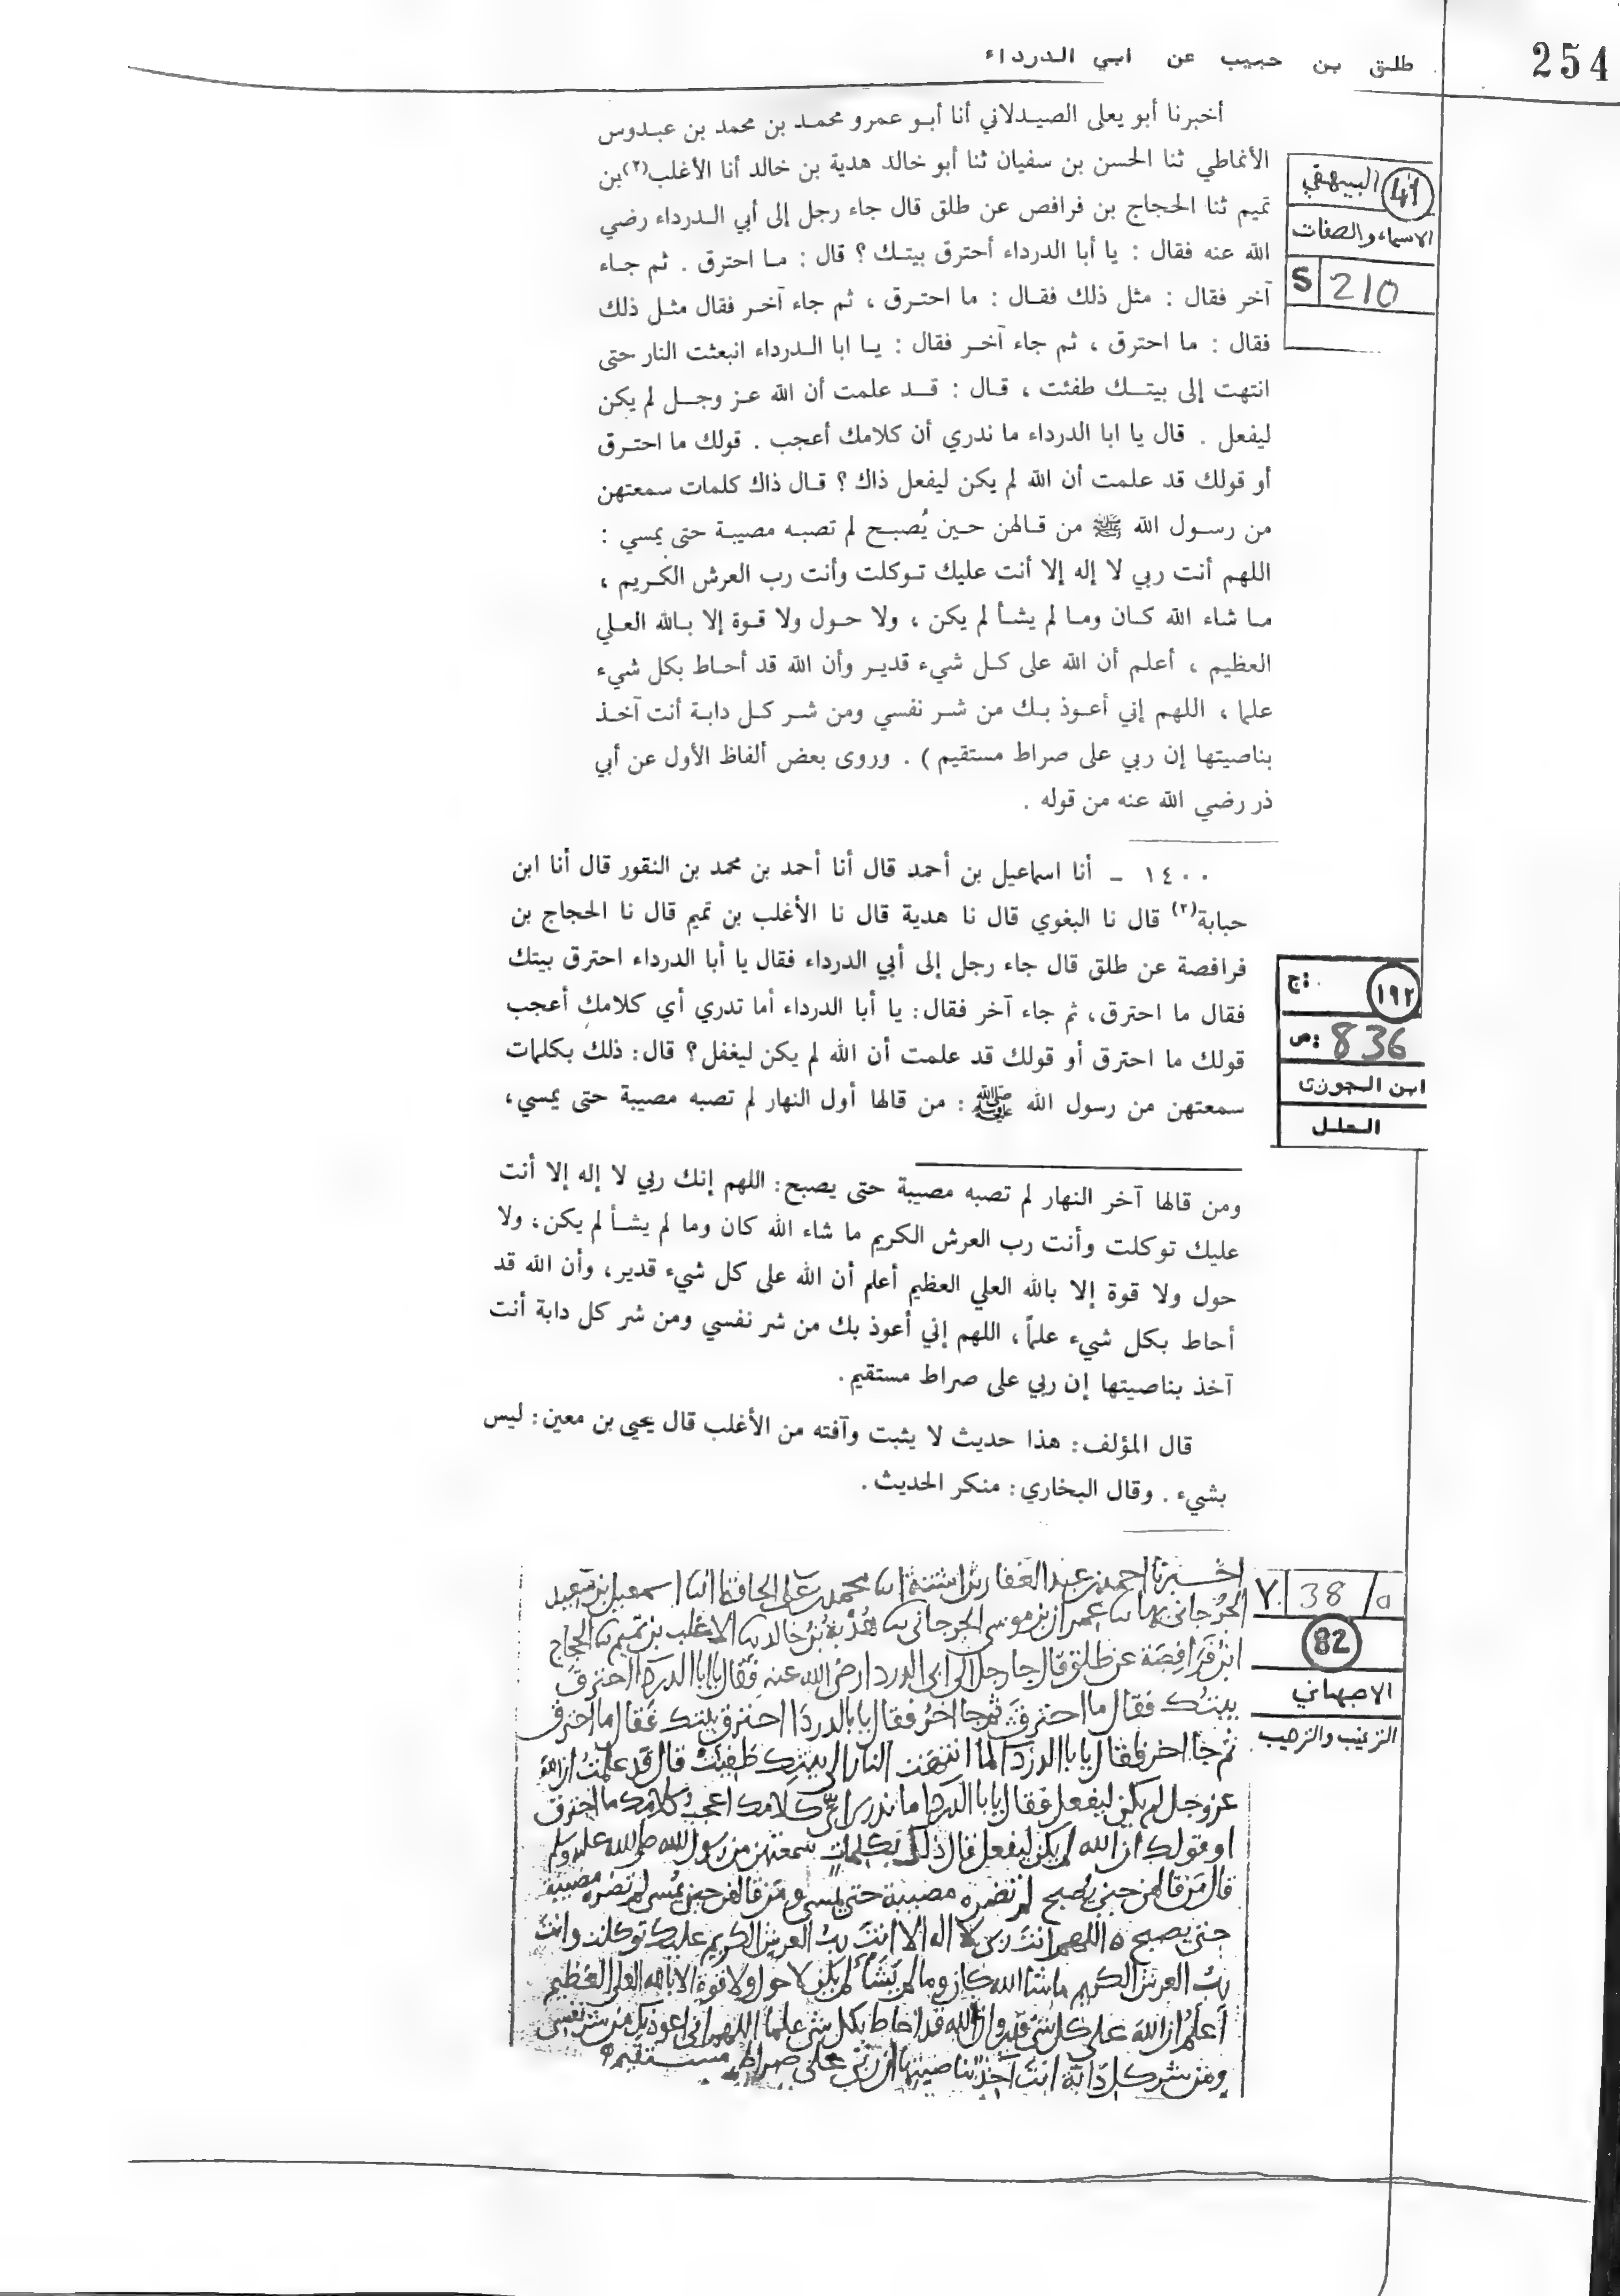 254
طلق بن حبيب عن ابي الدرداء
أخبرنا أبو يعلى الصيدلاني أنا أبو عمرو محمد بن محمد بن عبدوس
الأنماطي ثنا الحسن بن سفيان ثنا أبو خالد هدية بن خالد أنا الأغلب(٢) بن
تميم ثنا الحجاج بن فرافص عن طلق قال جاء رجل إلى أبي الدرداء رضي
الله عنه فقال : يا أبا الدرداء أحترق بيتك ؟ قال : ما احترق . ثم جاء
آخر فقال : مثل ذلك فقال : ما احترق ، ثم جاء آخر فقال مثل ذلك
فقال : ما احترق ، ثم جاء آخر فقال : يا ابا الدرداء انبعثت النار حتى
انتهت إلى بيتك طفئت ، قال : قد علمت أن الله عز وجل لم يكن
ليفعل . قال يا ابا الدرداء ما ندري أن كلامك أعجب . قولك ما احترق
أو قولك قد علمت أن الله لم يكن ليفعل ذاك ؟ قال ذاك كلمات سمعتهن
من رسول الله ﷺ من قالهن حين يُصبح لم تصبه مصيبة حتى يمسي :
اللهم أنت ربي لا إله إلا أنت عليك توكلت وأنت رب العرش الكريم ،
ما شاء الله كان وما لم يشأ لم يكن ، ولا حول ولا قوة إلا بالله العلي
العظيم ، أعلم أن الله على كل شيء قدير وأن الله قد أحاط بكل شيء
علما ، اللهم إني أعوذ بك من شر نفسي ومن شر كل دابة أنت آخذ
بناصيتها إن ربي على صراط مستقيم ) . وروى بعض ألفاظ الأول عن أبي
ذر رضي الله عنه من قوله .
41 البيهقي
الاسماء والصفات
S 210
١٤٠٠ - أنا اسماعيل بن أحمد قال أنا أحمد بن محمد بن النقور قال أنا ابن
حبابة(٢) قال نا البغوي قال نا هدية قال نا الأغلب بن تميم قال نا الحجاج بن
فرافصة عن طلق قال جاء رجل إلى أبي الدرداء فقال يا أبا الدرداء احترق بيتك
فقال ما احترق، ثم جاء آخر فقال: يا أبا الدرداء أما تدري أي كلامك أعجب
قولك ما احترق أو قولك قد علمت أن الله لم يكن ليغفل؟ قال: ذلك بكلمات
سمعتهن من رسول الله ﷺ: من قالها أول النهار لم تصبه مصيبة حتى يمسي،
ومن قالها آخر النهار لم تصبه مصيبة حتى يصبح: اللهم إنك ربي لا إله إلا أنت
عليك توكلت وأنت رب العرش الكريم ما شاء الله كان وما لم يشأ لم يكن، ولا
حول ولا قوة إلا بالله العلي العظيم أعلم أن الله على كل شيء قدير، وأن الله قد
أحاط بكل شيء علماً، اللهم إني أعوذ بك من شر نفسي ومن شر كل دابة أنت
آخذ بناصيتها إن ربي على صراط مستقيم.
قال المؤلف: هذا حديث لا يثبت وآفته من الأغلب قال يحيى بن معين: ليس
بشيء. وقال البخاري: منكر الحديث.
١٩٢ ج:
ص: 836
ابن الجوزى
العلل
اخبرنا احمد بن عبد الغفار بن اشتة انا محمد بن علي الحافظ انا اسمعيل بن سعيد
الجرجاني بها نا عمران بن موسى الجرجاني نا هُدْبة بن خالد نا الاغلب بن تميم نا الحجاج
ابن فرافِصَة عن طلق قال جا رجل الى ابى الدردا رضى الله عنه فقال يابا الدردا احترق
بيتك فقال ما احترق ثم جا اخر فقال يابا الدردا احترق بيتك فقال ما احترق
ثم جا اخر فقال يابا الدردا لما انتهت النار الى بيتك طفيت قال قد علمت ان الله
عز وجل لم يكن ليفعل فقال يابا الدردا ما ندرى اىّ كلامك اعجب كلامك ما احترق
او قولك ان الله لم يكن ليفعل قال ذلك بكلمات سمعتهن من رسول الله صلى الله عليه وسلم
قال من قالهن حين يُصبح لم تضره مصيبة حتى يمسى ومن قالهن حين يُمسى لم تضره مصيبة
حتى يصبح اللهم انت ربى لا اله الا انت رب العرش الكريم عليك توكلت وانت
رب العرش الكريم ما شا الله كان وما لم يشأ لم يكن لا حول ولا قوة الا بالله العلى العظيم
أعلم ان الله على كل شى قدير وان الله قد احاط بكل شى علما اللهم انى اعوذ بك من شر نفسى
ومن شر كل دابة انت آخذ بناصيتها ان ربى على صراط مستقيم
Y. 38/a
82
الاصبهاني
الترغيب والترهيب